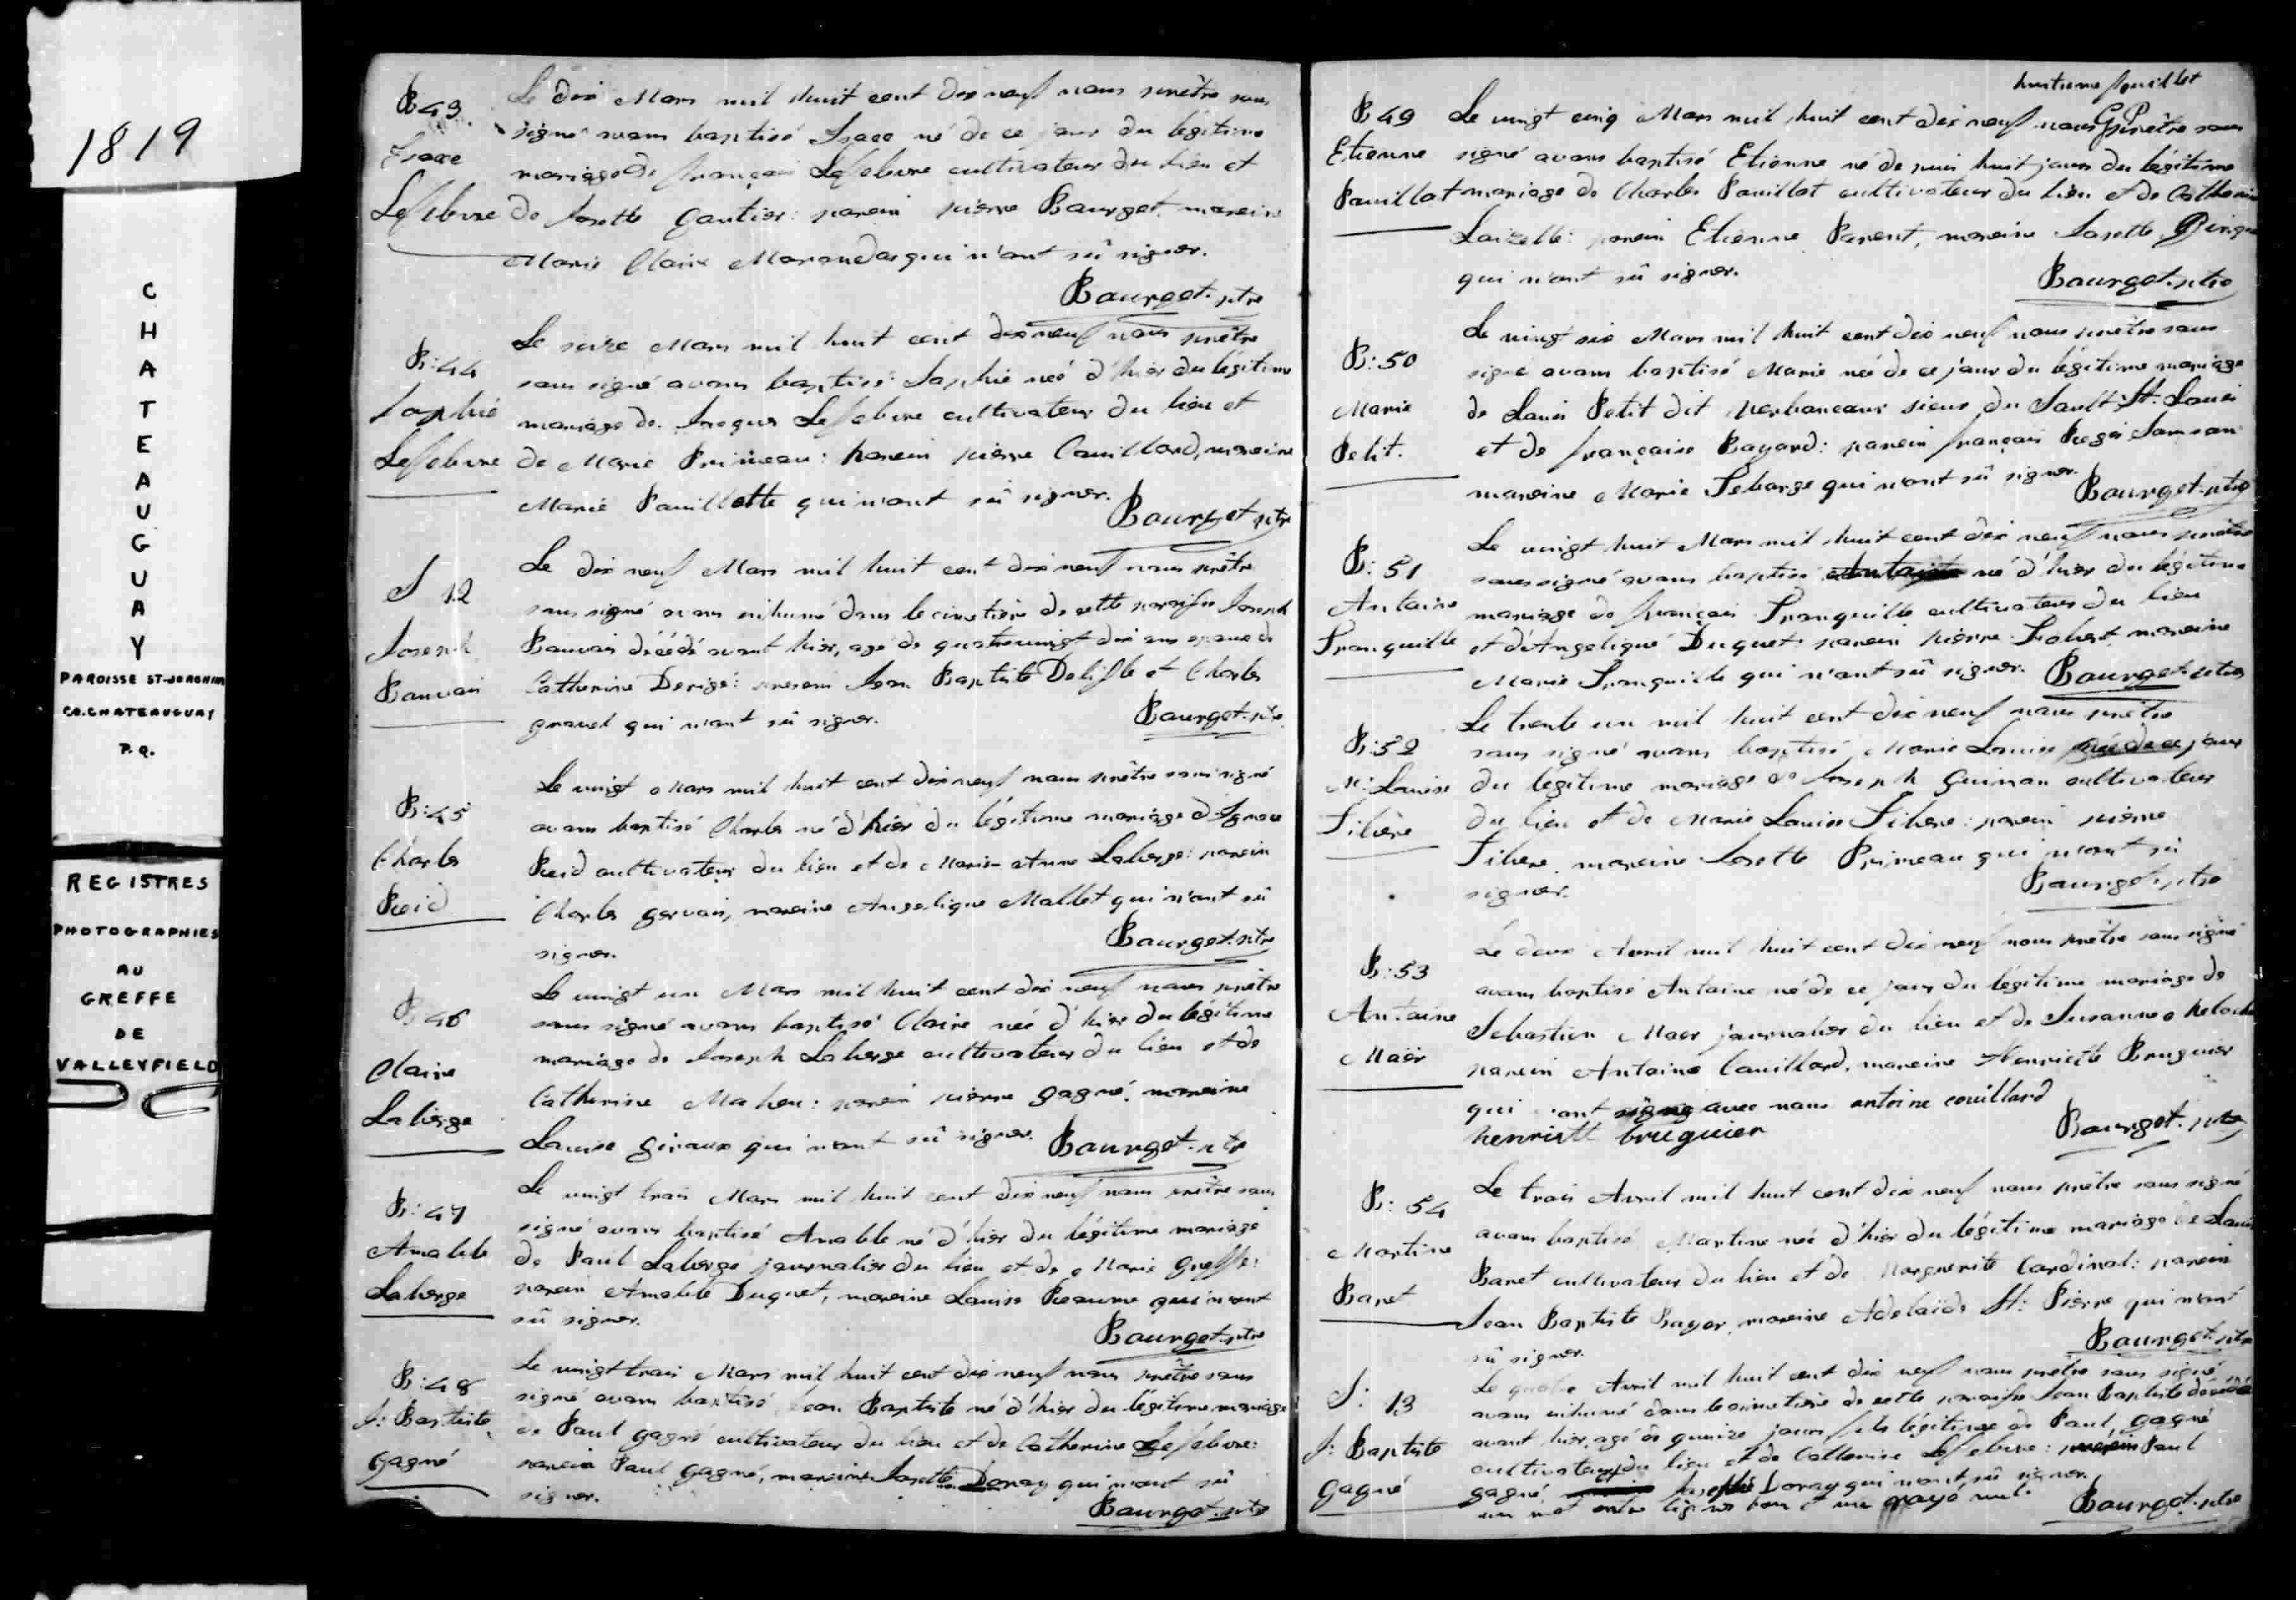 1819
CHATEAUGUAY
PAROISSE ST-JOACHIM
CO. CHATEAUGUAY
P.Q.
REGISTRES
PHOTOGRAPHIES
AU
GREFFE
DE
VALLEYFIELD
B 43.
Isaac
Lefebvre
Le dix Mars mil huit cent dix neuf nous prêtre sous
signé avons baptisé Isaac né de ce jour du légitime
mariage de françois Lefebvre cultivateur du lieu et
de Josette Gautier: parein pierre Bourget mareine
Marie Claire qui n'ont sû signer.
Bourget. ptre
B: 44
Sophie
Lefebvre
Le seize Mars mil huit cent dix neuf nous prêtre
sous signé avons baptisé Sophie neé d'hier du légitime
mariage de Jacques Lefebvre cultivateur du lieu et
de Marie Primeau: parein pierre Couillard, mareine
Marie Pouillotte qui n'ont sû signer.
Bourget ptre
S 12
Joseph
Bauvais
Le dix neuf Mars mil huit cent dix neuf nous prêtre
sous signé avons inhumé dans le cimetière de cette paroisse Joseph
Bauvais décédé avant hier, agé de quatrevingt dix ans epoux de
Catherine Derigé: presens Jean Baptiste Delisle et Charles
gravel qui n'ont sû signer.
Bourget. ptre
B: 45
Charles
Reid
Le vingt Mars mil huit cent dix neuf nous prêtre sous signé
avons baptisé Charles né d'hier du légitime mariage d'Ignace
Reid cultivateur du lieu et de Marie anne Laberge: parein
Charles gervais, mareine Angelique Mallet qui n'ont sû
signer.
Bourget. ptre
B 46
Claire
Laberge
Le vingt un Mars mil huit cent dix neuf nous prêtre
sous signé avons baptisé Claire neé d'hier du légitime
mariage de Joseph Laberge cultivateur du lieu et de
Catherine Maheu: parein pierre gagné, mareine
Louise giroux qui n'ont sû signer.
Bourget. ptre
B: 47
Amable
Laberge
Le vingt trois Mars mil huit cent dix neuf nous prêtre sous
signé avons baptisé Amable né d'hier du légitime mariage
de Paul Laberge journalier du lieu et de Marie
parein Amable Duquet, mareine Louise Reaume qui n'ont
sû signer.
Bourget. ptre
B: 48
J: Baptiste
gagné
Le vingt trois Mars mil huit cent dix neuf nous prêtre sous
signé avons baptisé Jean Baptiste né d'hier du légitime mariage
de Paul gagné cultivateur du lieu et de Catherine Lefebvre:
parein Paul gagné, mareine Josette Doray qui n'ont sû
signer.
Bourget. ptre
huitieme feuillet
B 49
Etienne
Pouillot
Le vingt cinq Mars mil huit cent dix neuf nous prêtre sous
signé avons baptisé Etienne né depuis huit jours du légitime
mariage de Charles Pouillot cultivateur du lieu et de Catherine
Loizelle: parein Etienne Parent, mareine Josette
qui n'ont sû signer.
Bourget. ptre
B: 50
Marie
Petit.
Le vingt six Mars mil huit cent dix neuf nous prêtre sous
signé avons baptisé Marie neé de ce jour du légitime mariage
de Louis Petit dit sieur du Sault St: Louis
et de françoise Bayard: parein françois Regis Samson
mareine Marie Leberge qui n'ont sû signer.
Bourget. ptre
B: 51
Antoine
Tranquille
Le vingt huit Mars mil huit cent dix neuf nous prêtre
sous signé avons baptisé né d'hier du légitime
mariage de françois Tranquille cultivateur du lieu
et d'Angelique Duquet: parein pierre mareine
Marie Tranquille qui n'ont sû signer.
Bourget. ptre
B: 52
M: Louise
Tibère
Le trente un mil huit cent dix neuf nous prêtre
sous signé avons baptisé Marie Louise née de ce jour
du légitime mariage de Joseph guinan cultivateur
du lieu et de Marie Louise Tibere: parein pierre
Tibere, mareine Josette Primeau qui n'ont sû
signer.
Bourget. ptre
B: 53
Antoine
Maër
Le deux Avril mil huit cent dix neuf nous prêtre sous signé
avons baptisé Antoine né de ce jour du légitime mariage de
Sebastien Maer journalier du lieu et de Susanne
parein Antoine Couillard, mareine Henriette Bruguier
qui ont signé avec nous antoine couillard
henriett bruguier
Bourget. ptre
B: 54
Martine
Baret
Le trois Avril mil huit cent dix neuf nous prêtre sous signé
avons baptisé Martine neé d'hier du légitime mariage de Louis
Baret cultivateur du lieu et de Marguerite Cardinal: parein
Jean Baptiste Boyer, mareine Adelaïde St: Pierre qui n'ont
sû signer.
Bourget. ptre
S: 13
J: Baptiste
gagné
Le quatre Avril mil huit cent dix neuf nous prêtre sous signé
avons inhumé dans le cimetière de cette paroisse Jean Baptiste décédé
avant hier, agé de quinze jours fils légitime de Paul gagné
cultivateur du lieu et de Catherine Lefebvre: Paul
gagné, Josephte Doray qui n'ont sû signer.
un mot entre lignes bon et un rayé nul.
Bourget. ptre